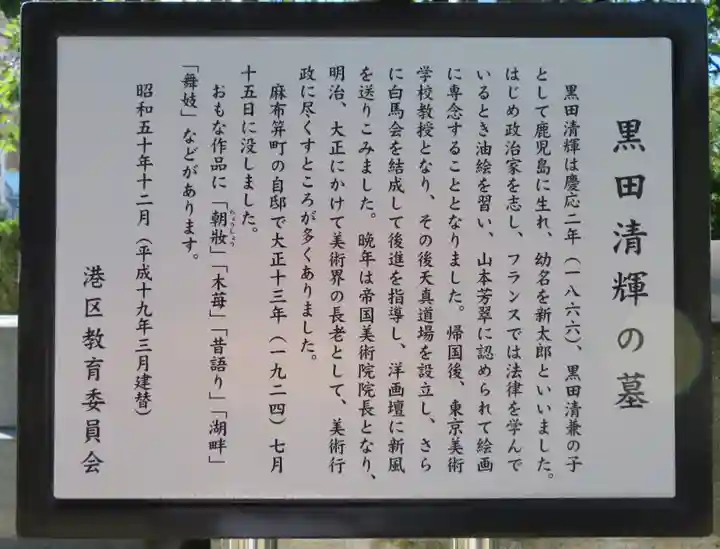 黒田清輝の墓
黒田清輝は慶応二年（一八六六）、黒田清兼の子
として鹿児島に生れ、幼名を新太郎といいました。
はじめ政治家を志し、フランスでは法律を学んで
いるとき油絵を習い、山本芳翠に認められて絵画
に専念することとなりました。帰国後、東京美術
学校教授となり、その後天真道場を設立し、さら
に白馬会を結成して後進を指導し、洋画壇に新風
を送りこみました。晩年は帝国美術院院長となり、
明治、大正にかけて美術界の長老として、美術行
政に尽くすところが多くありました。
麻布笄町の自邸で大正十三年（一九二四）七月
十五日に没しました。
おもな作品に「朝妝」「木苺」「昔語り」「湖畔」
ちょうしょう
「舞妓」などがあります。
昭和五十年十二月（平成十九年三月建替）
港区教育委員会